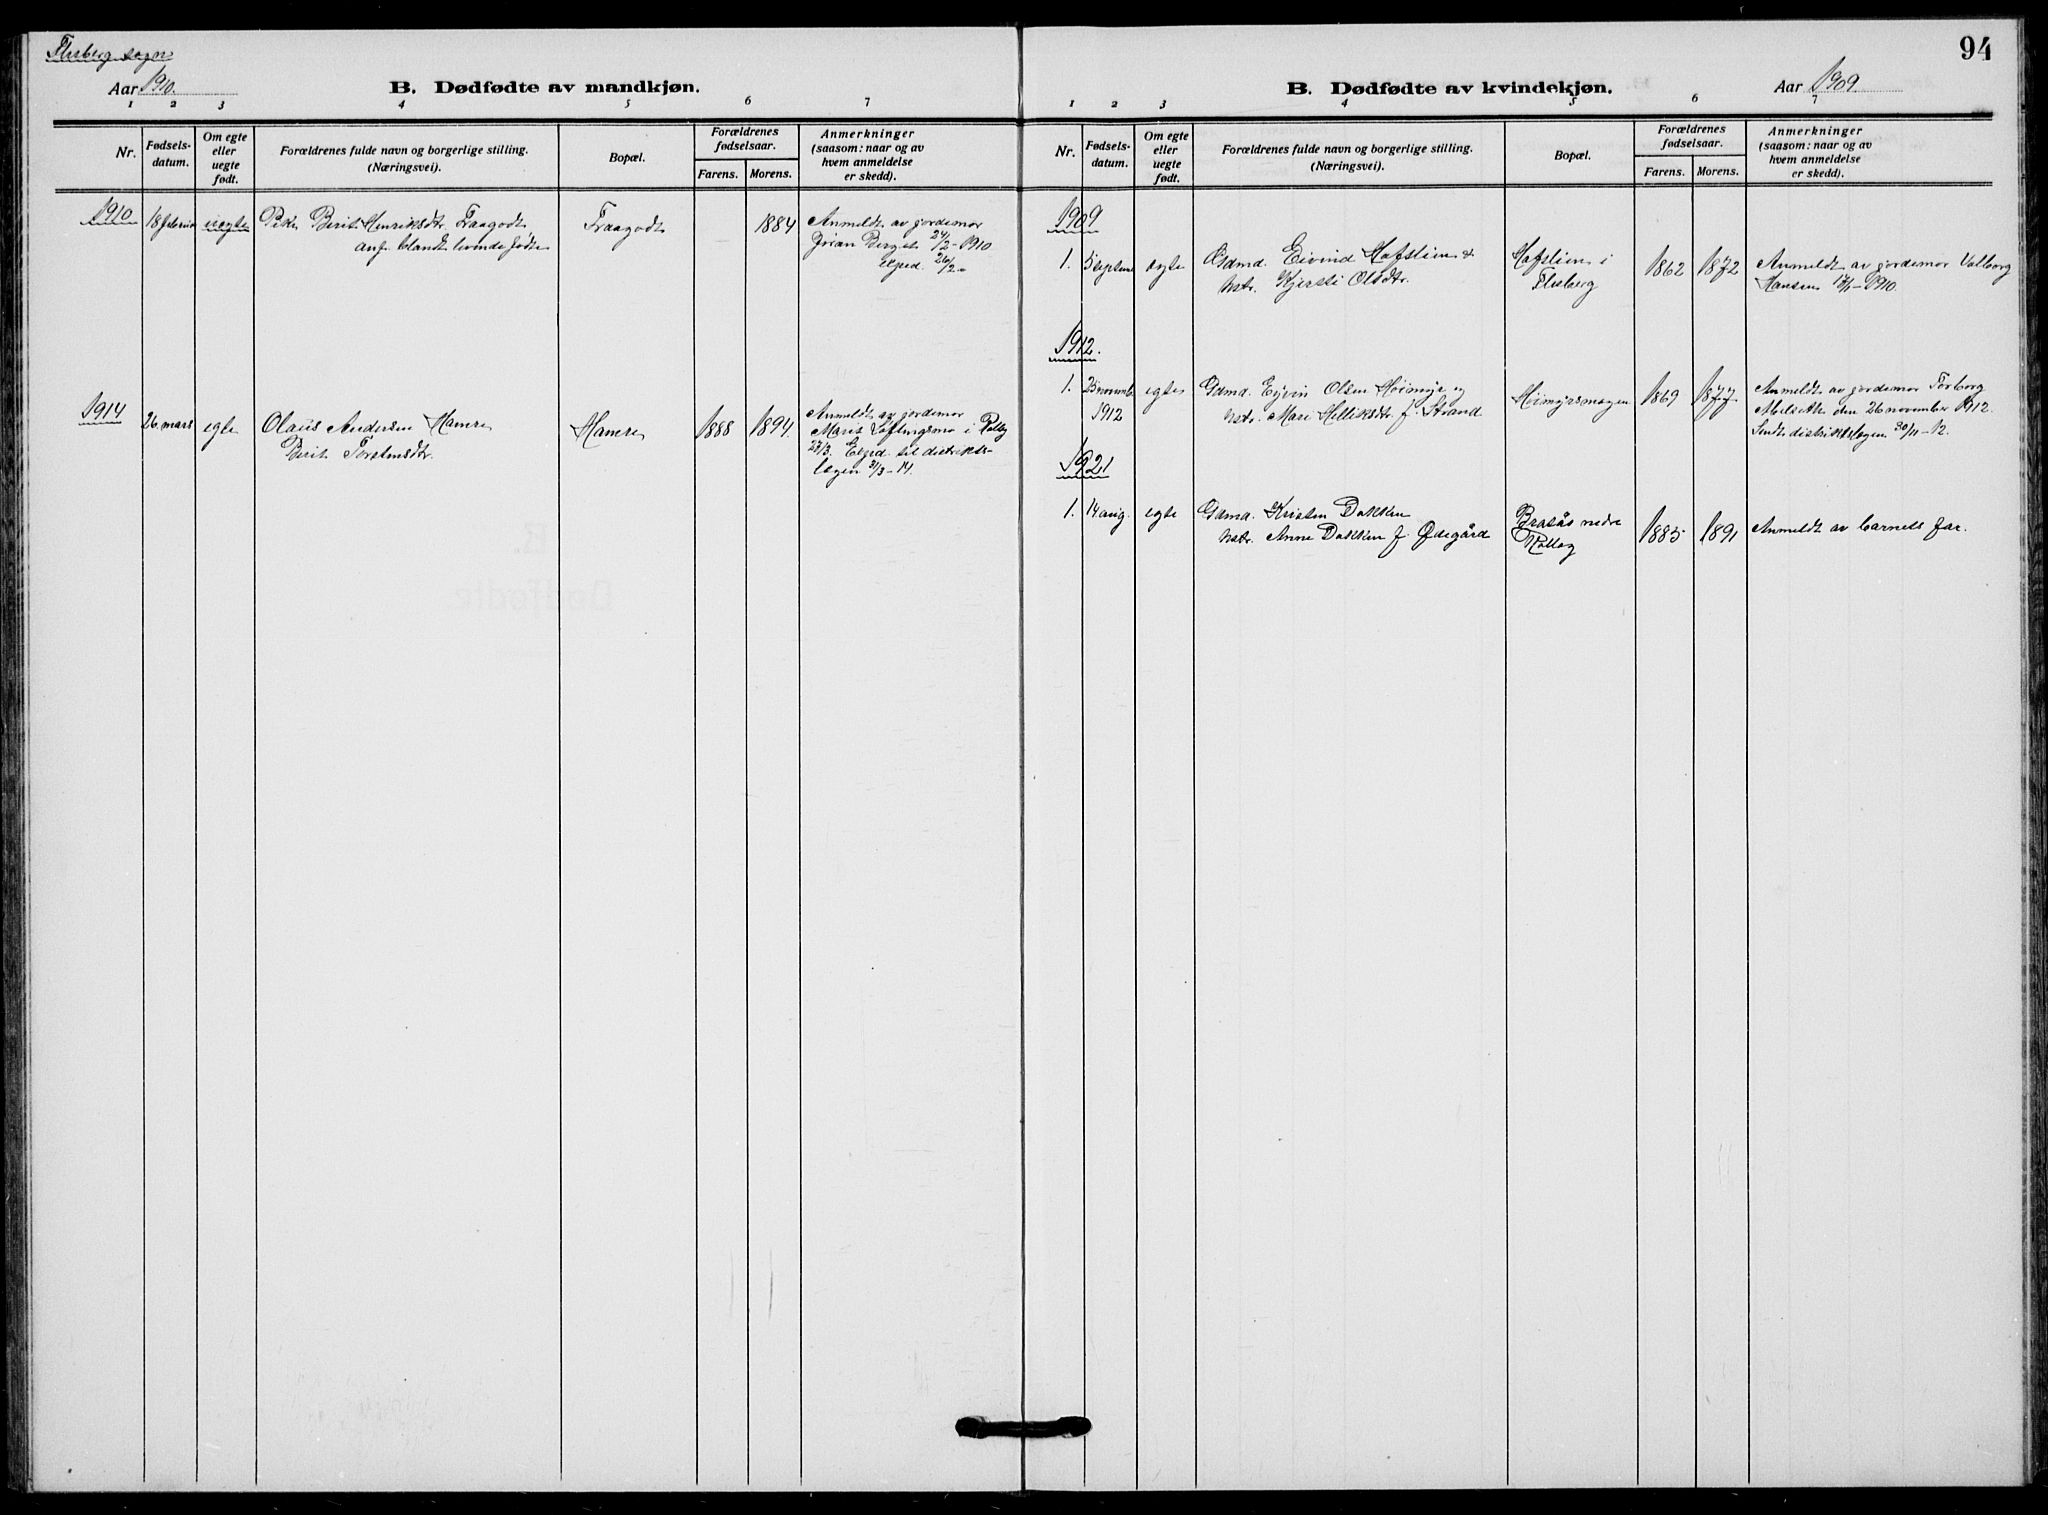 Flesberg sogn
Aar 1910.
B. Dødfødte av mandkjøn.
1 2 3 4 5 6 7
Nr.
Fødsels-
datum.
Om egte
eller
uegte
født.
Forældrenes fulde navn og borgerlige stilling.
(Næringsvei).
Bopæl.
Forældrenes
fødselsaar.
Farens. Morens.
Anmerkninger
(saasom: naar og av
hvem anmeldelse
er skedd).
1910
18 februar uegte Pike Berit Henriksdtr. Fraagodt Fraagodt — 1884 Anmeldt av jordemor
anf. blandt levende fødte Berget 24/2-1910
exped. 26/2.
1914
26. mars egte Olaus Andersen Hamre Hamre 1888 1894. Anmeldt av jordemor
Berit Torstensdtr. Marit Løftingsmo i Rollag
27/3. Exped. til distrikts-
lægen 31/3-14.
94
B. Dødfødte av kvindekjøn.
Aar 1909
1 2 3 4 5 6 7
Nr.
Fødsels-
datum.
Om egte
eller
uegte
født.
Forældrenes fulde navn og borgerlige stilling.
(Næringsvei).
Bopæl.
Forældrenes
fødselsaar.
Farens. Morens.
Anmerkninger
(saasom: naar og av
hvem anmeldelse
er skedd).
1909
1. 5 septem egte Gdmd. Eivind Hofslien & Hofslien i 1862 1872 Anmeldt av jordemor Valborg
hstr. Kjersti Olsdtr. Flesberg Hansen 1910.
1912.
1. 25 novemb. egte Gdmd. Eyvin Olsen Høimyr og Høimyrsmogen 1869 1877 Anmeldt av jordemor Torborg
1912 hstr. Mari Helliksdtr. f. Strand den 26 november 1912.
Sendt distriktslægen 30/11-12.
1921
1. 14 aug. egte Gdmd. Kristen Dokken Bråtås nedre 1885 1891 Anmeldt av barnets far.
hstr. Anne Dokken f. Ødegård Rollag